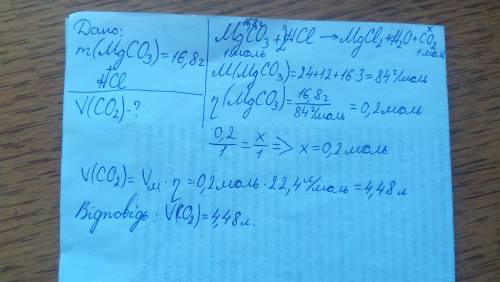 Дано:
m(MgCO₃)=16,8г
+
HCl
V(CO₂)-?
16,8г x
MgCO₃+2HCl→MgCl₂+H₂O+CO₂
1моль 1моль
M(MgCO₃)=24+12+16·3=84г/моль
η(MgCO₃)=16,8г/84г/моль=0,2моль
0,2/1=x/1=>x=0,2моль
V(CO₂)=Vм·η=0,2моль·22,4л/моль=4,48л
Відповідь: V(CO₂)=4,48л.